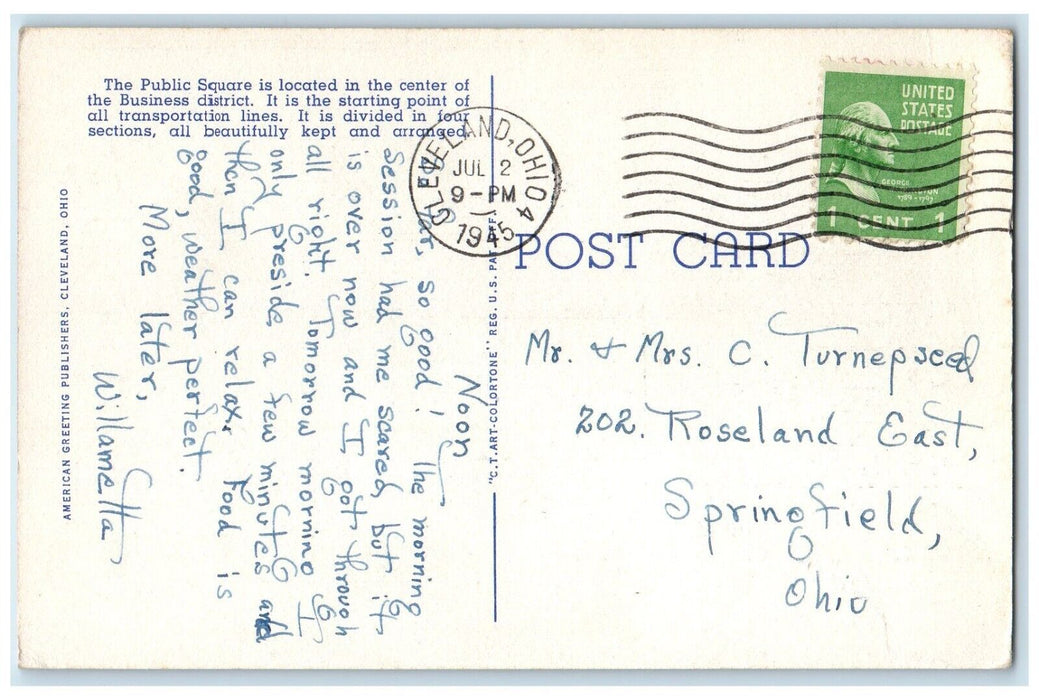 The Public Square is located in the center of
the Business district. It is the starting point of
all transportation lines. It is divided in four
sections, all beautifully kept and arranged.
AMERICAN GREETING PUBLISHERS, CLEVELAND, OHIO
Noon
So far, so good! The morning
session had me scared, but it
is over now and I got through
all right. Tomorrow morning I
only preside a few minutes and
then I can relax. Food is
good, weather perfect.
More later,
Willametta
"C.T. ART-COLORTONE" REG. U.S. PAT. OFF.
CLEVELAND, OHIO
JUL 2
9-PM
1945
POST CARD
UNITED
STATES
POSTAGE
GEORGE
WASHINGTON
1789-1797
1 CENT 1
Mr. & Mrs. C. Turnepseed
202. Roseland East,
Springfield,
Ohio